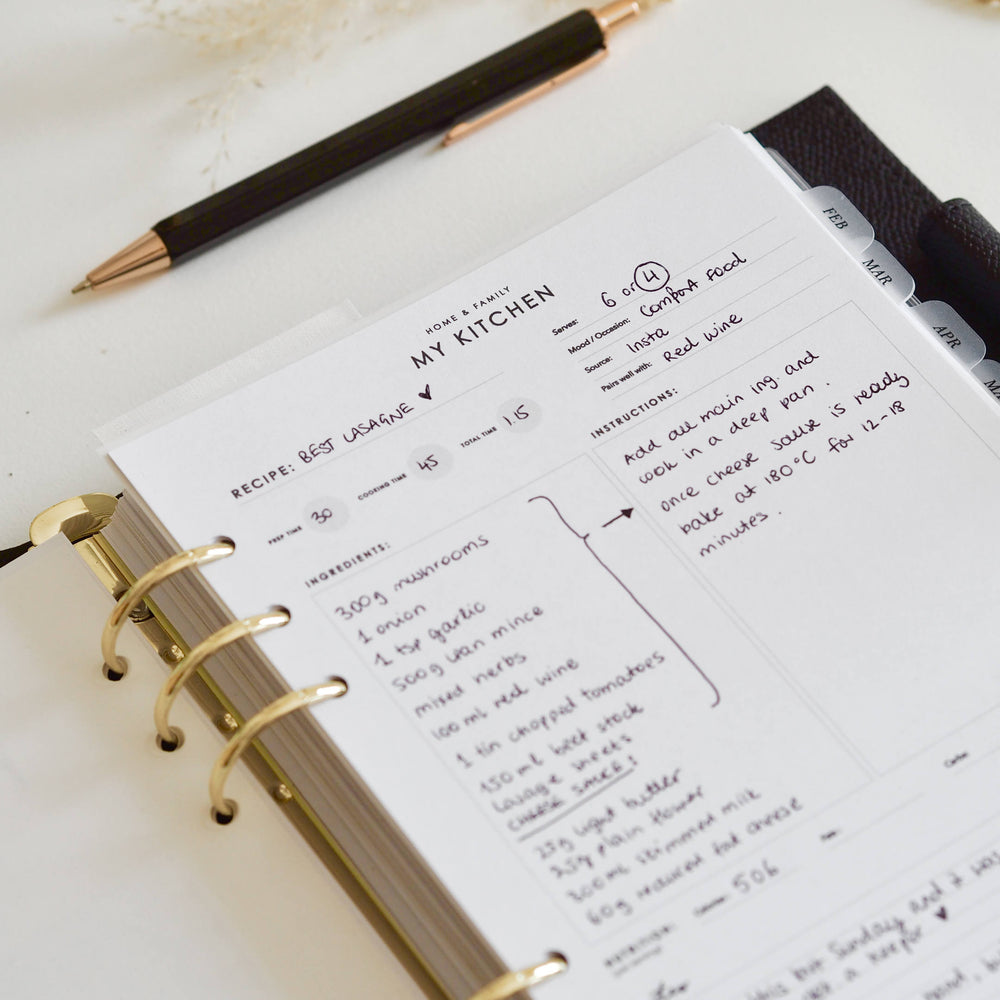 HOME & FAMILY
MY KITCHEN
RECIPE: BEST LASAGNE ♥
PREP TIME 30
COOKING TIME 45
TOTAL TIME 1.15
Serves: 6 or 4
Mood / Occasion: Comfort Food
Source: Insta
Pairs well with: Red wine
INGREDIENTS:
300g mushrooms
1 onion
1 tsp garlic
500g lean mince
mixed herbs
100 ml red wine
1 tin choppid tomatoes
150ml beef stock
Lasage sheets
CHEESE SAUCE:
25g light butter
25g plain flower
300ml skimmed milk
60g reduced fat cheese
INSTRUCTIONS:
Add all main ing. and
cook in a deep pan.
once cheese sause is ready
bake at 180°C for 12-18
minutes.
NUTRITION:
Calories: 506
Carbs:
this Sunday and it was
a keeper ♥
FEB
MAR
APR